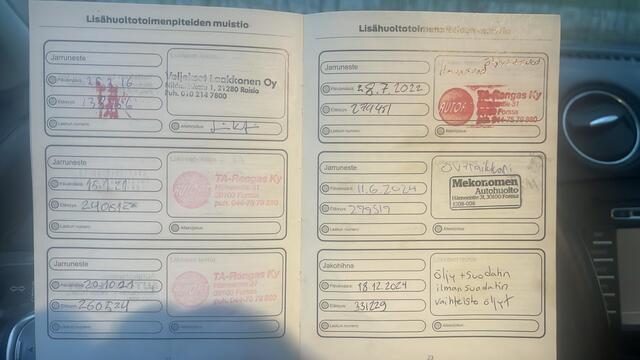 Lisähuoltotoimenpiteiden muistio
Jarruneste
Päivämäärä
Etäisyys
Laskun numero
Veljekset Laakkonen Oy
21280 Raisio
Puh. 010 214 7600
Allekirjoitus
Jarruneste
Päivämäärä 15.1.21
Etäisyys
Laskun numero
TA-Rengas Ky
Hämeentie 31
30100 Forssa
puh. 044-75 79 980
Allekirjoitus
Jarruneste
Päivämäärä 20.10.21
Etäisyys 260534
Laskun numero
Liikkeen leima
TA-Rengas Ky
Hämeentie 31
30100 Forssa
puh. 044-75 79 980
Allekirjoitus
Lisähuoltotoimenpiteiden muistio
Jarruneste
Päivämäärä 28.7.2022
Etäisyys 279451
Laskun numero
TA-Rengas Ky
044-75 79 980
Allekirjoitus
Jarruneste
Päivämäärä 11.6.2024
Etäisyys
Laskun numero
Mekonomen
Autohuolto
Hämeentie 31, 30100 Forssa
Allekirjoitus
Jakohihna
Päivämäärä 18.12.2024
Etäisyys 331229
Laskun numero
Liikkeen leima
öljy + suodatin
ilmansuodatin
vaihteisto öljyt
Allekirjoitus